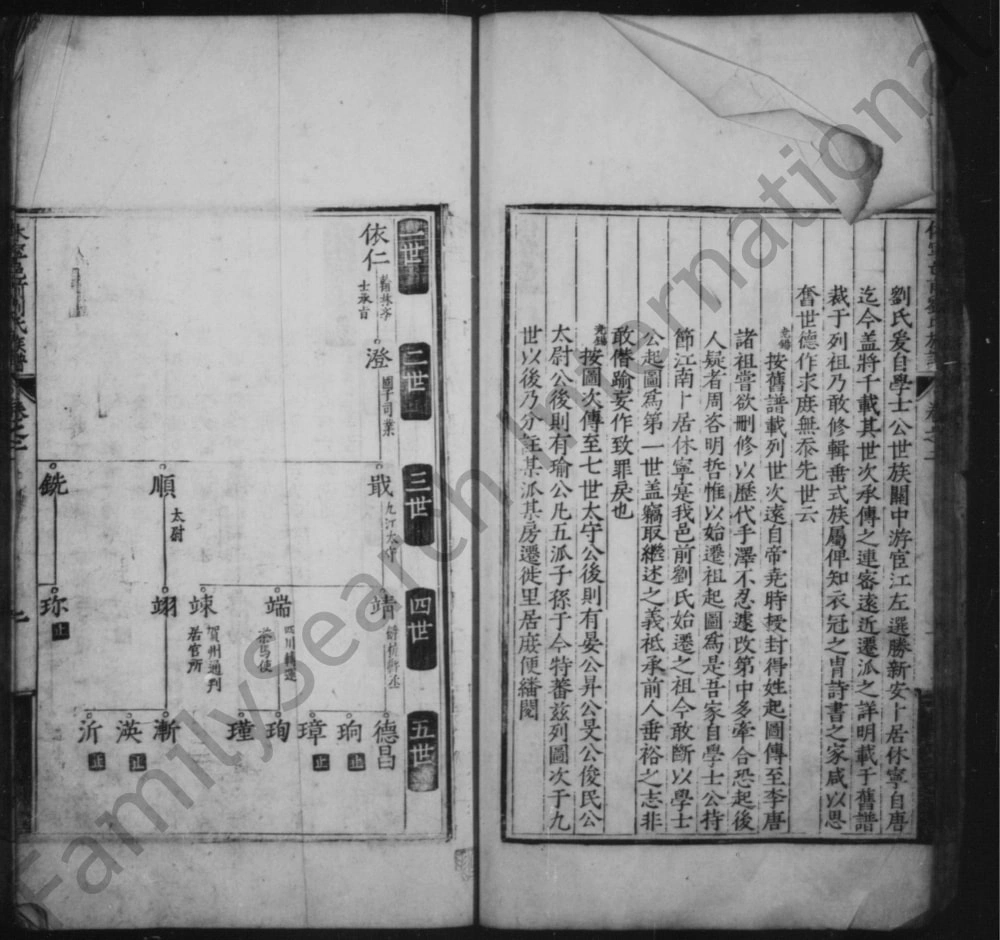 劉氏爰自學士公世族關中游宦江左選勝新安卜居休寧自唐
迄今盖將千載其世次承傳之連寧遠近遷派之詳明載于舊譜
裁于列祖乃敢修輯垂式族屬俾知衣冠之胄詩書之家咸以思
奮世德作求庶無忝先世云
按舊譜載列世次遠自帝堯時授封得姓起圖傳至李唐
諸祖嘗欲刪修以歷代手澤不忍遽改第中多牽合恐起後
人疑者周咨明哲惟以始遷祖起圖為是吾家自學士公持
節江南卜居休寧寔我邑前劉氏始遷之祖今敢斷以學士
公起圖為第一世盖竊取繼述之義祗承前人垂裕之志非
敢僭踰妄作致罪戾也
按圖次傳至七世太守公後則有晏公昇公旻公俊民公
太尉公後則有瑜公凡五派子孫于今特蕃茲列圖次于九
世以後乃分註某派某房遷徙里居庶便繙閱
一世
二世
三世
四世
五世
依仁
翰林學
士承旨
澄
國子司業
戢
九江太守
順
太尉
銑
靖
端
茶馬使
竦
賀州通判
居官所
翊
珎
止
德曰
珦
止
璋
止
珣
瑾
漸
渶
止
沂
止
FamilySearch International